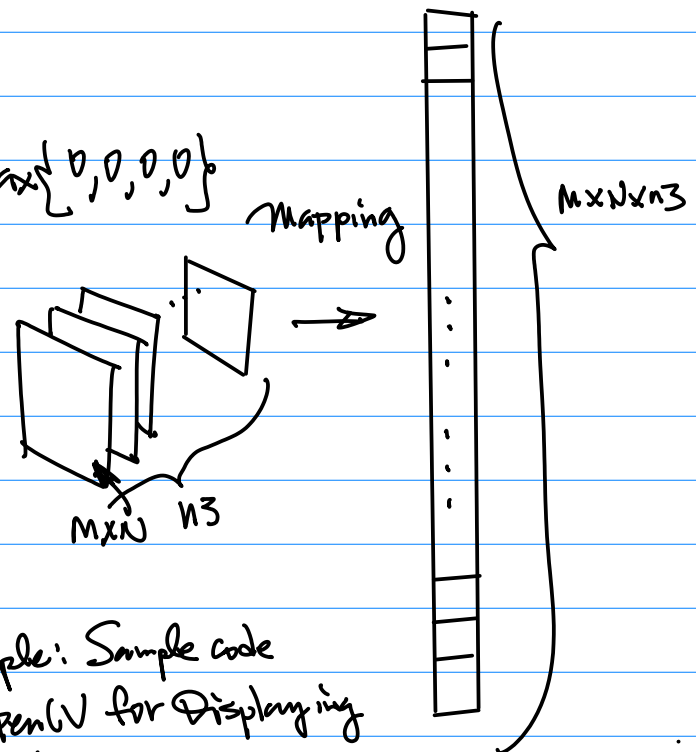 {0,0,0,0}
Mapping
MxNxn3
MxN
n3
ple: Sample code
penCV for Displaying